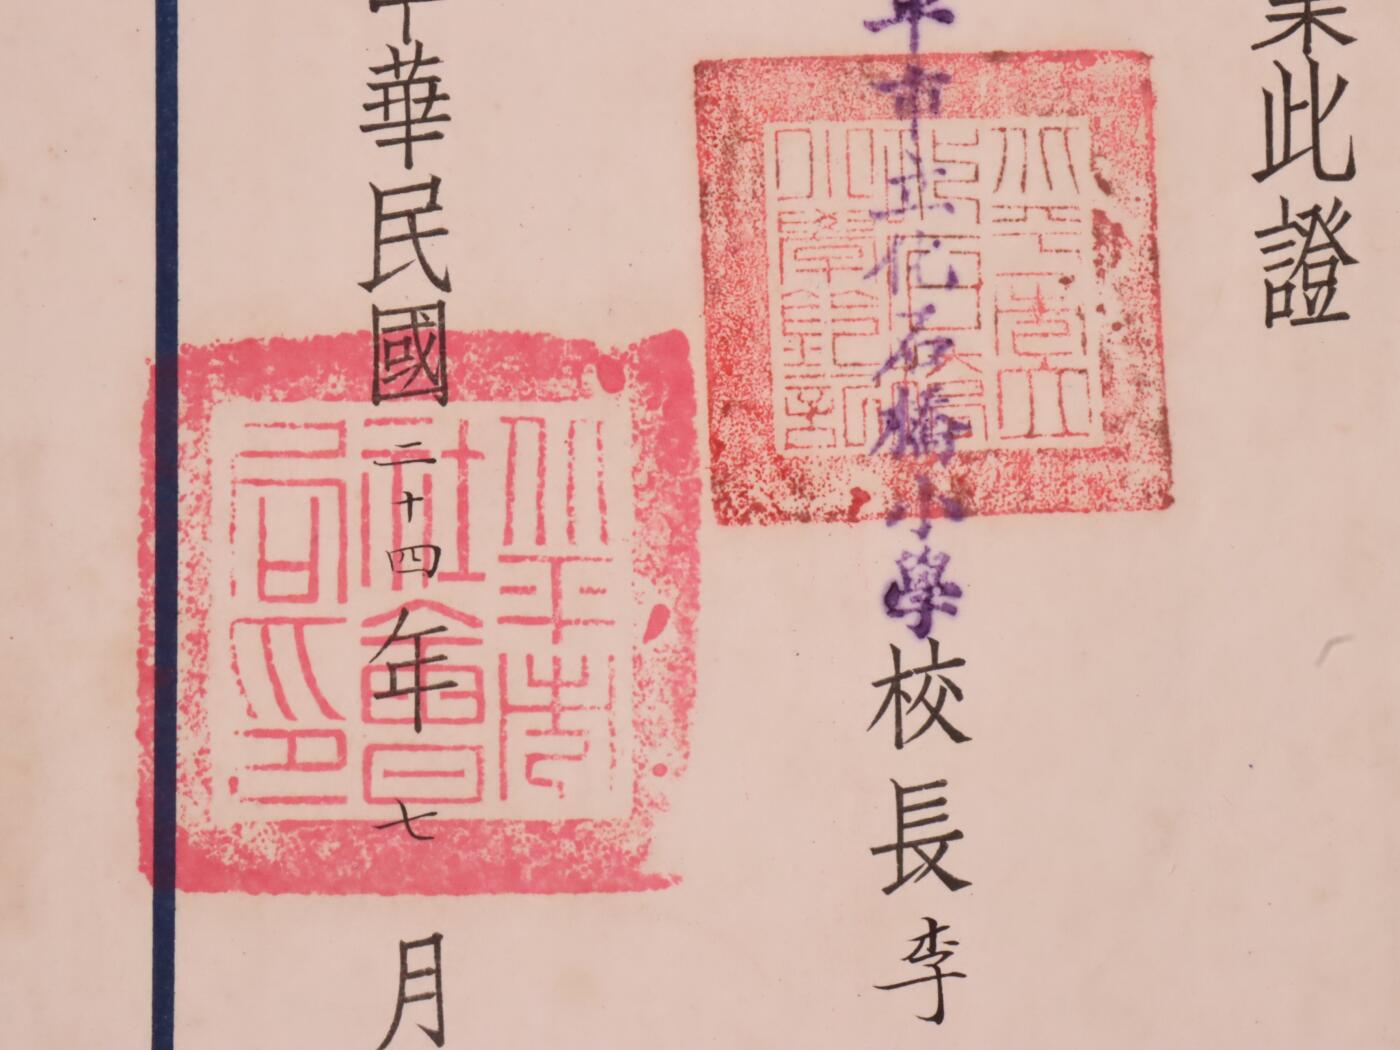 業此證
平市立化石橋小學校長李
中華民國二十四年七月
北平市立
化石橋
小學鈐記
北平市
社會局
印